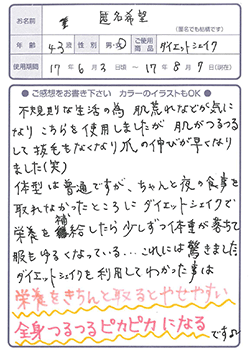 お名前 匿名希望
(匿名でも結構です)
年齢 43歳 性別 男・女 ご使用商品 ダイエットシェイク
使用期間 17年6月3日頃〜17年8月7日(現在)
●ご感想をお書き下さい カラーのイラストもOK●
不規則な生活の為 肌荒れなどが気に
なり こちらを使用しましたが 肌がつるつる
して 抜毛もなくなり 爪の伸びが早くなり
ました(笑)
体型は普通ですが、ちゃんと夜の食事を
取れなかったところに ダイエットシェイクで
栄養を補給したら 少しずつ体重が落ちて
服もゆるくなっている...これには驚きました
ダイエットシェイクを利用してわかった事は
栄養をきちんと取るとやせやすい
全身つるつるピカピカになる
です♫